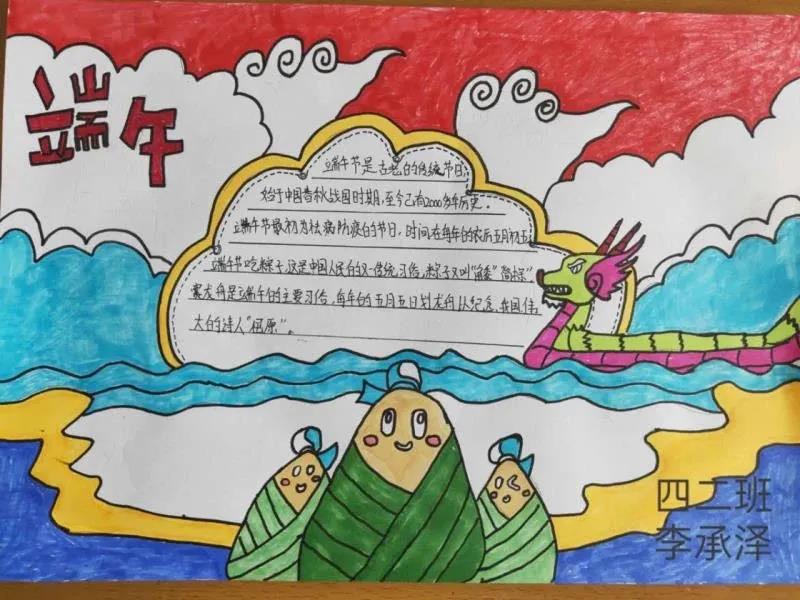 端午
端午节是古老的传统节日,
始于中国春秋战国时期,至今已有2000多年历史.
端午节最初为祛病防疫的节日,时间在每年的农历五月初五
端午节吃粽子,这是中国人民的又一传统习俗,粽子又叫"角黍""筒粽"
赛龙舟是端午的主要习俗,每年的五月五日划龙舟以纪念,我国伟
大的诗人"屈原".
四二班
李承泽